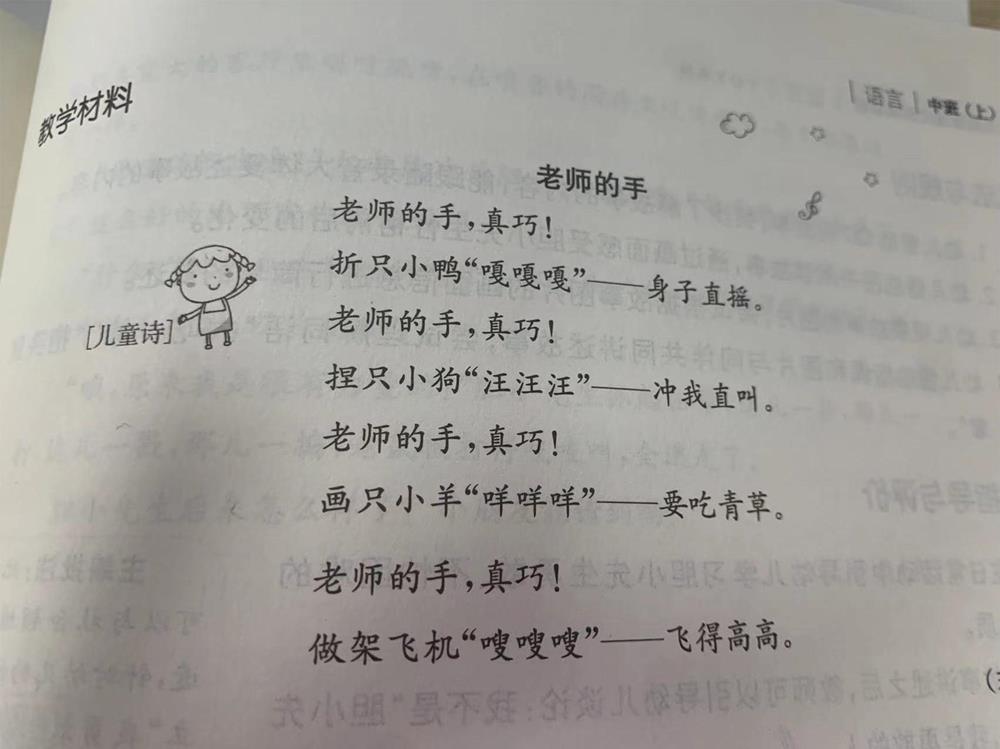 教学材料
| 语言 | 中班(上)
老师的手
老师的手,真巧!
折只小鸭“嘎嘎嘎”——身子直摇。
[儿童诗]
老师的手,真巧!
捏只小狗“汪汪汪”——冲我直叫。
老师的手,真巧!
画只小羊“咩咩咩”——要吃青草。
老师的手,真巧!
做架飞机“嗖嗖嗖”——飞得高高。